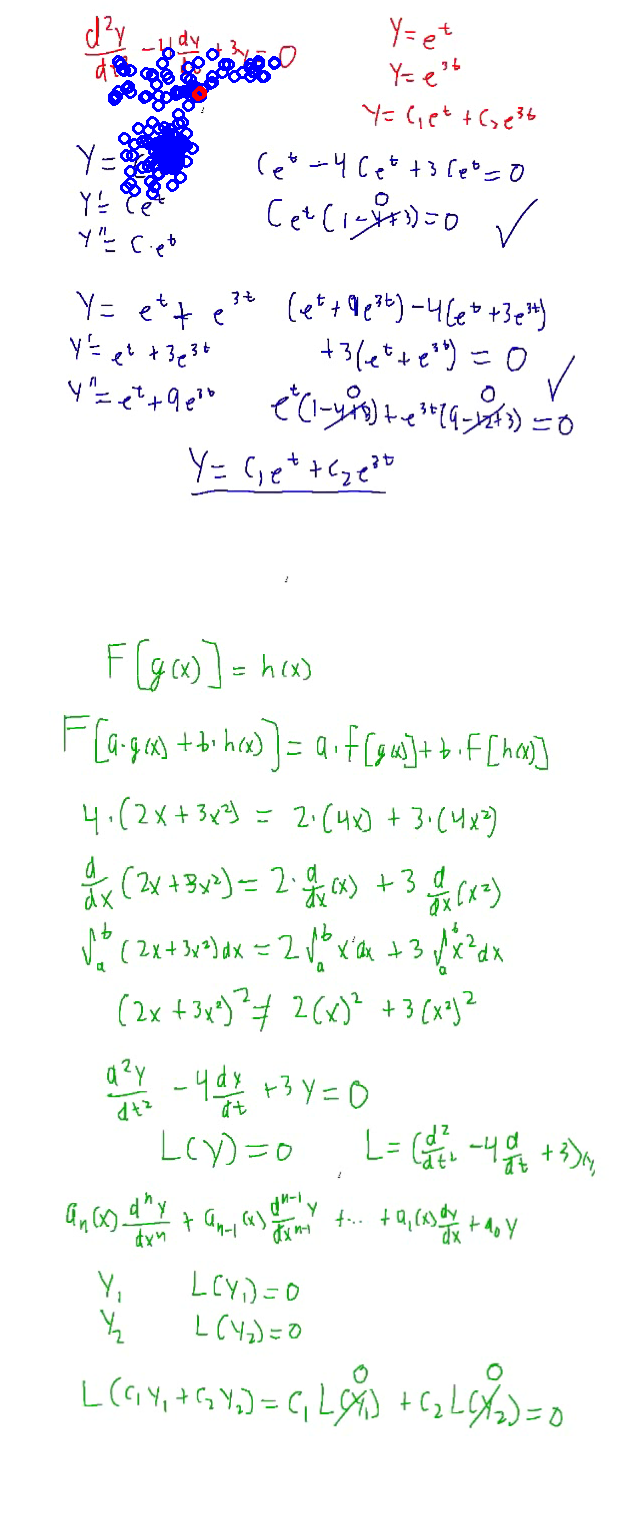 d²y/dt² - 4 dy/dt + 3y = 0
Y = e^t
Y = e^3t
Y = C₁e^t + C₂e^3t
Y =
Y' = Ce^t
Y'' = C·e^t
Ce^t - 4Ce^t + 3Ce^t = 0
Ce^t(1-4+3) = 0 ✓
0
Y = e^t + e^3t
Y' = e^t + 3e^3t
Y'' = e^t + 9e^3t
(e^t + 9e^3t) - 4(e^t + 3e^3t)
+3(e^t + e^3t) = 0 ✓
0 0
e^t(1-4+3) + e^3t(9-12+3) = 0
Y = C₁e^t + C₂e^3t
F[g(x)] = h(x)
F[a·g(x) + b·h(x)] = a·F[g(x)] + b·F[h(x)]
4·(2x + 3x²) = 2·(4x) + 3·(4x²)
d/dx (2x + 3x²) = 2·d/dx (x) + 3 d/dx (x²)
∫ₐᵇ (2x + 3x²)dx = 2∫ₐᵇ x dx + 3∫ₐᵇ x² dx
(2x + 3x²)² ≠ 2(x)² + 3(x²)²
d²y/dt² - 4 dy/dt + 3Y = 0
L(Y) = 0 L = (d²/dt² - 4 d/dt + 3)
aₙ(x) dⁿy/dxⁿ + aₙ₋₁(x) dⁿ⁻¹y/dxⁿ⁻¹ + ... + a₁(x) dy/dx + a₀Y
Y₁ L(Y₁) = 0
Y₂ L(Y₂) = 0
0 0
L(C₁Y₁ + C₂Y₂) = C₁L(Y₁) + C₂L(Y₂) = 0